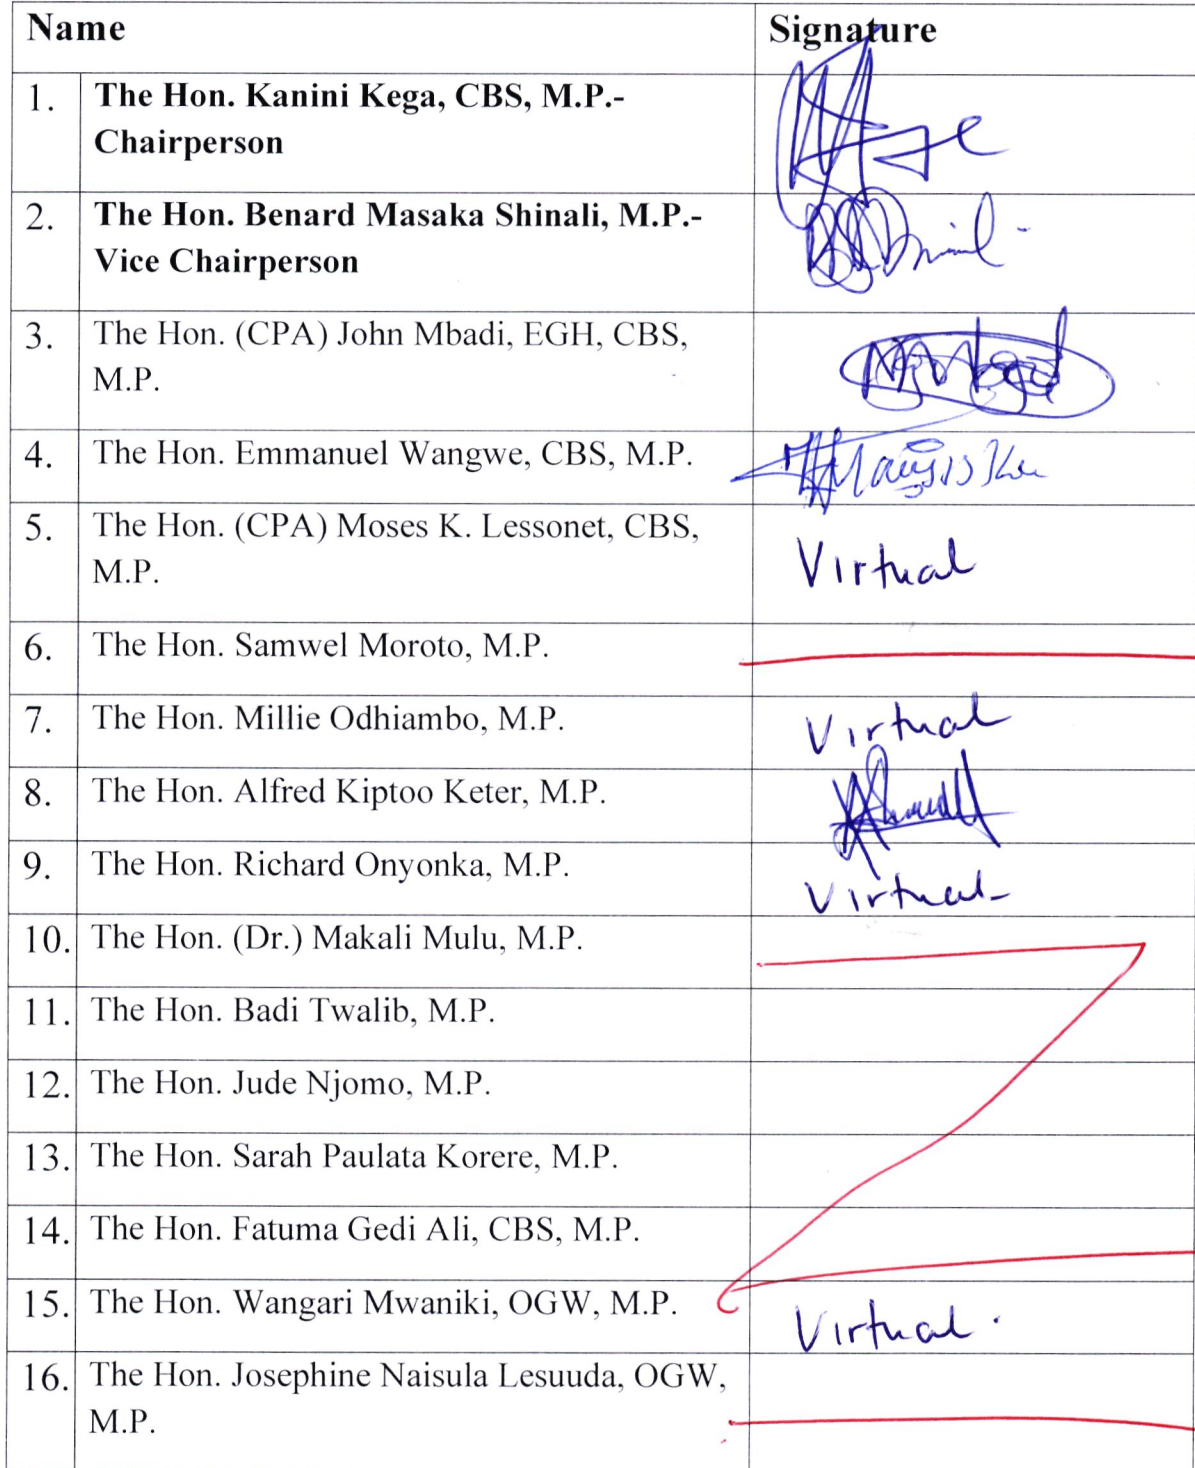 Name Signature
1. The Hon. Kanini Kega, CBS, M.P.-
Chairperson
2. The Hon. Benard Masaka Shinali, M.P.-
Vice Chairperson
3. The Hon. (CPA) John Mbadi, EGH, CBS,
M.P.
4. The Hon. Emmanuel Wangwe, CBS, M.P.
5. The Hon. (CPA) Moses K. Lessonet, CBS,
M.P.
Virtual
6. The Hon. Samwel Moroto, M.P.
7. The Hon. Millie Odhiambo, M.P. Virtual
8. The Hon. Alfred Kiptoo Keter, M.P.
9. The Hon. Richard Onyonka, M.P. Virtual
10. The Hon. (Dr.) Makali Mulu, M.P.
11. The Hon. Badi Twalib, M.P.
12. The Hon. Jude Njomo, M.P.
13. The Hon. Sarah Paulata Korere, M.P.
14. The Hon. Fatuma Gedi Ali, CBS, M.P.
15. The Hon. Wangari Mwaniki, OGW, M.P. Virtual.
16. The Hon. Josephine Naisula Lesuuda, OGW,
M.P.